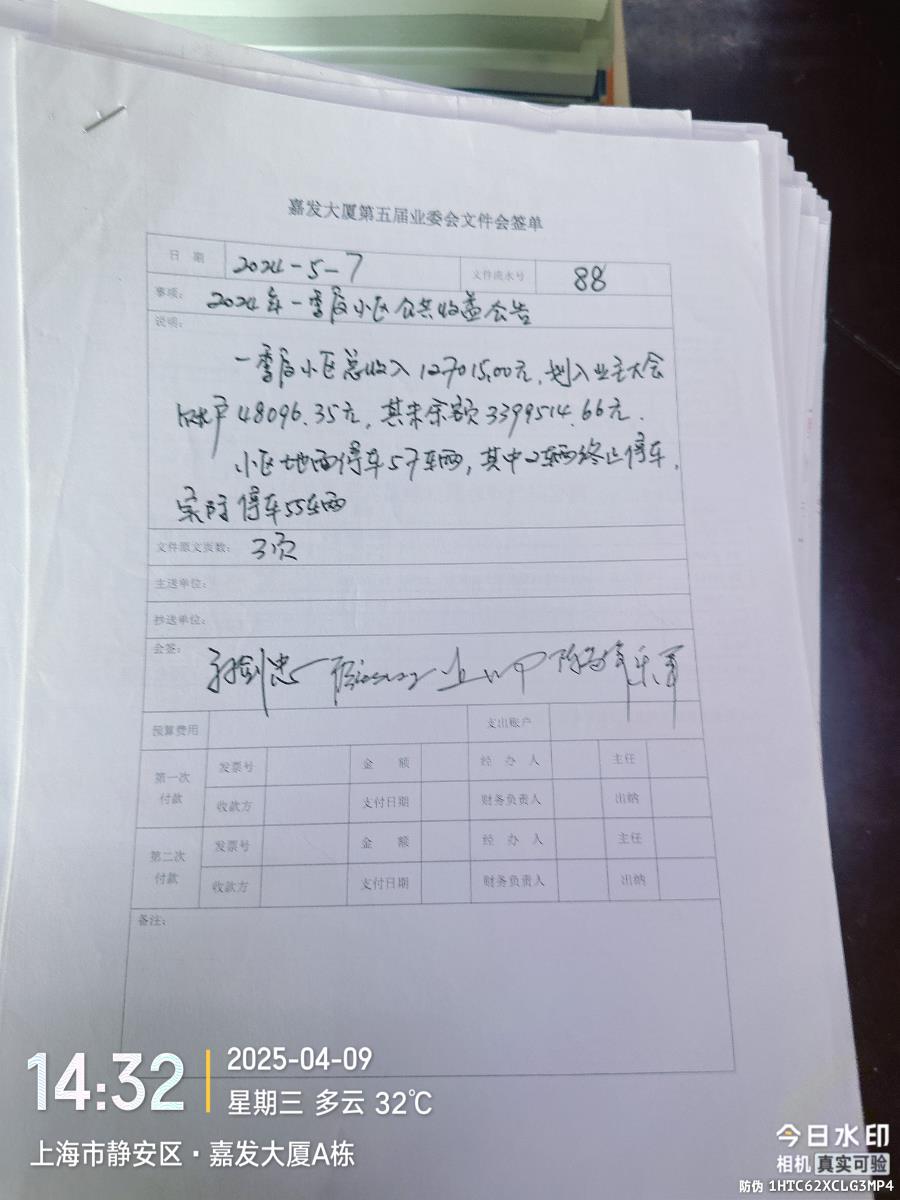 嘉发大厦第五届业委会文件会签单
日 期 2024-5-7 文件流水号 88
事项： 2024年一季度小区公共收益公告
说明：
一季度小区总收入127015.00元，划入业主大会
账户48096.35元，其末余额3399514.66元．
小区地面停车57车辆，其中2车辆终止停车，
实际停车55车辆
文件原文页数： 3页
主送单位：
抄送单位：
会签：
预算费用 支出账户
第一次付款 发票号 金 额 经 办 人 主任
收款方 支付日期 财务负责人 出纳
第二次付款 发票号 金 额 经 办 人 主任
收款方 支付日期 财务负责人 出纳
备注：
14:32 2025-04-09
星期三 多云 32℃
上海市静安区·嘉发大厦A栋
今日水印
相机 真实可验
防伪 1HTC62XCLG3MP4